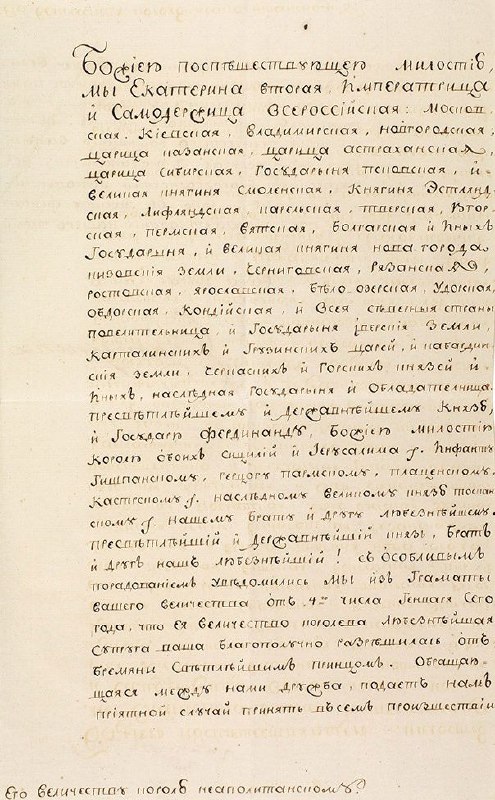 Божіею поспѣшествующею милостію,
мы Екатерина вторая Императрица
и Самодержица Всероссійская: Москов
ская, Кіевская, Владимирская, новгородская,
царица казанская, царица астраханская,
царица Сибирская, Государыня псковская, и
великая княгиня Смоленская, Княгиня Эстлянд
ская, Лифляндская, карельская, тверская, Югор
ская, пермская, Вятская, Болгарская и Иныхъ
Государыня, и великая княгиня нова города
низовскія земли, Черниговская, Рязанская,
ростовская, ярославская, Бѣлоозерская, Удорская,
обдорская, кондійская, и Всея сѣверныя страны
повелительница, и Государыня Іверскія земли,
Карталинскихъ и Грузинскихъ царей, и кабардин
скія земли, Черкаскихъ и Горскихъ князей и
Иныхъ, наслѣдная Государыня и Обладательница.
Пресвѣтлѣйшему и Державнѣйшему Князю,
и Государю Фердинанду, Божіею Милостію
Королю обоихъ Сицилій и Іерусалима, Инфанту
Гишпанскому, герцогу пармскому, плаценскому,
Кастрскому, наслѣдному великому князю тоскан
скому, Нашему брату и другу любезнѣйшему.
пресвѣтлѣйшій и Державнѣйшій князь, Братъ
и другъ нашъ любезнѣйшій! Съ особливымъ
порадованіемъ увѣдомились Мы изъ Граматы
вашего величества отъ 4го числа Генваря Сего
года, что Ея Величество королева любезнѣйшая
Супруга ваша благополучно разрѣшилась отъ
бремяни Свѣтлѣйшимъ принцомъ. Обращаю
щаяся между нами дружба, подаетъ намъ
пріятной случай принять въ семъ произшествіи
Его величеству королю неаполитанскому